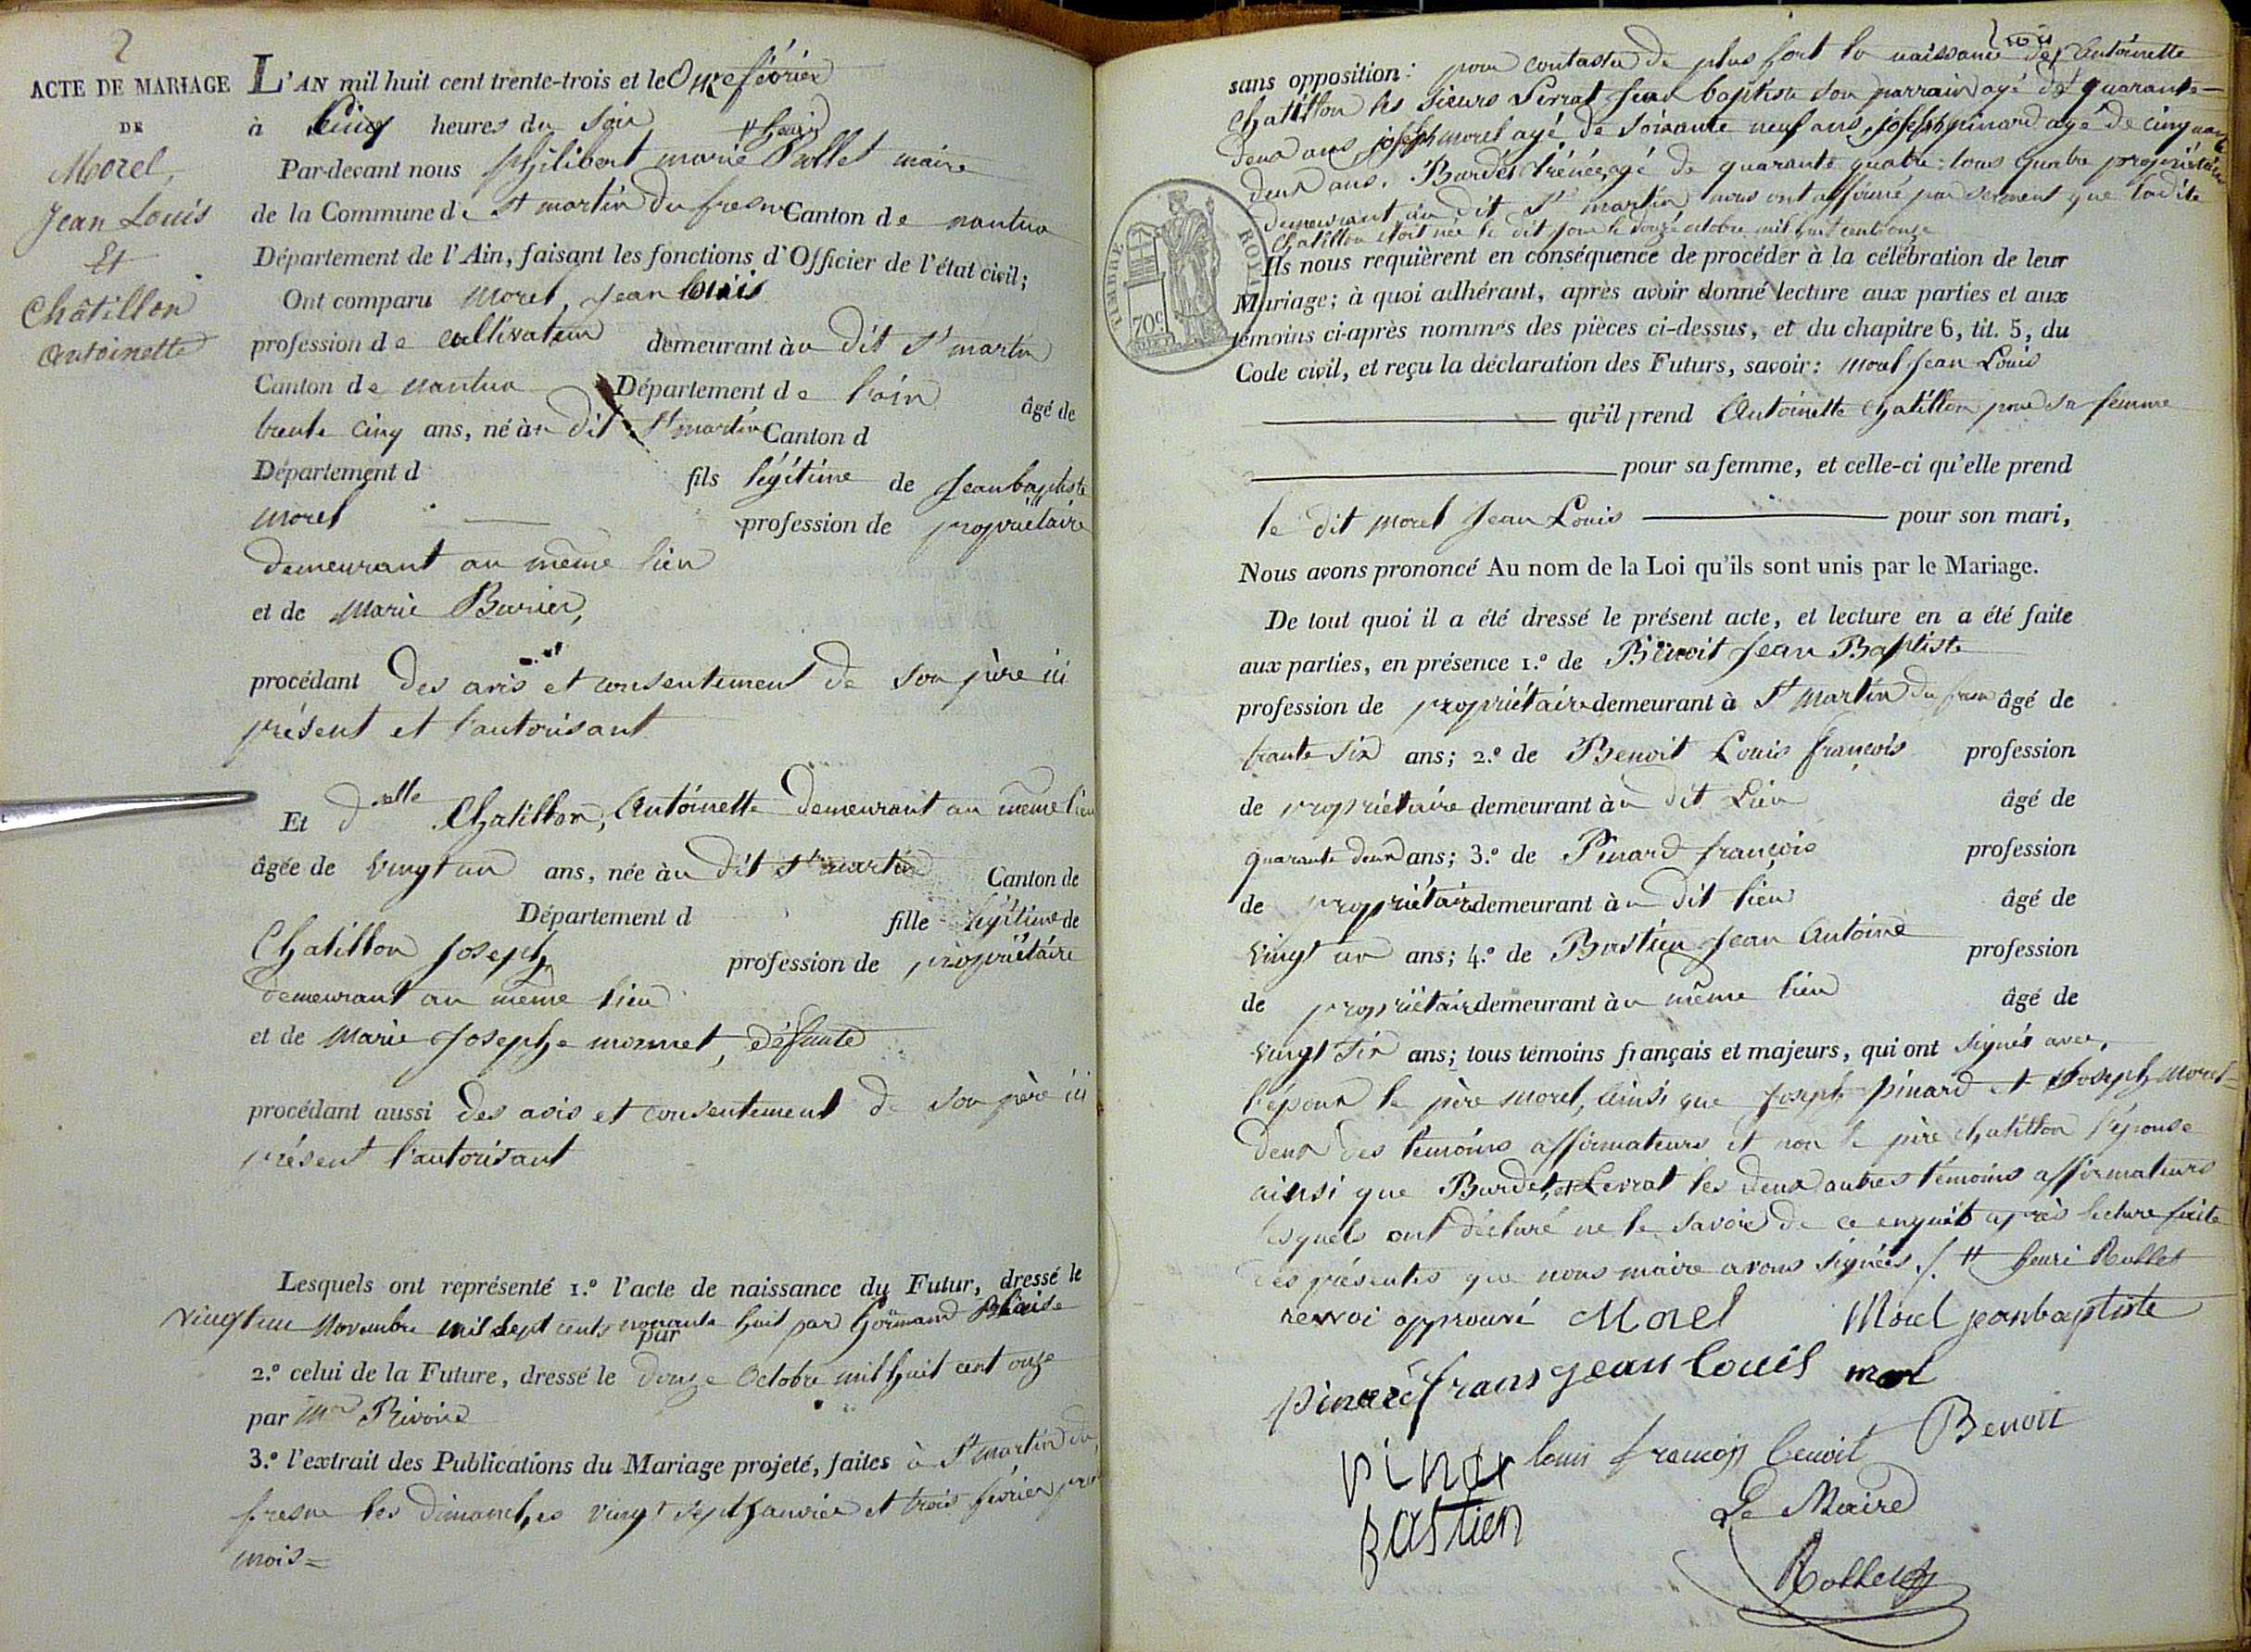 2
ACTE DE MARIAGE
DE
Morel,
Jean Louis
Et
Châtillon
Antoinette
L'AN mil huit cent trente-trois et le onze février
à Cinq heures du Soir
Par-devant nous philibert marie # henri Rollet maire
de la Commune de St martin du fresne Canton de nantua
Département de l'Ain, faisant les fonctions d'Officier de l'état civil;
Ont comparu Morel, Jean Louis
profession de cultivateur demeurant àu dit St martin
Canton de nantua Département de l'ain âgé de
trente cinq ans, né àu dit St martin Canton d
Département d fils légitime de Jean baptiste
Morel profession de propriétaire
demeurant au même lieu
et de Marie Burier,
procédant des avis et consentement de son père ici
présent et l'autorisant
Et delle Chatillon, Antoinette demeurant au même lieu
âgée de vingt un ans, née àu dit St martin Canton de
Département d fille légitime de
Chatillon Joseph profession de propriétaire
demeurant au même lieu
et de Marie Josephe monnet, défunte
procédant aussi des avis et consentement de son père ici
présent l'autorisant
Lesquels ont représenté 1.º l'acte de naissance du Futur, dressé le
vingt un Novembre mil sept cents nonante huit par Gormand Blaise
par
2.º celui de la Future, dressé le douze Octobre mil huit cent onze
par Mr Rivoire
3.º l'extrait des Publications du Mariage projeté, faites à St martin du
fresne les dimanches vingt sept Janvier et trois février
mois =
sans opposition: pour contaster de plus fort la naissance de Antoinette
Chatillon les sieurs Serrat Jean baptiste son parrain agé de quarante-
deux ans, joseph morel agé de soixante neuf ans, joseph pinard agé de cinquante
deux ans. Burdet Irénée, agé de quarante quatre: tous quatre propriétaires
demeurant au dit St martin nous ont affirmé par serment que ladite
Chatillon etoit née le dit jour le douze octobre mil huit cent onze
TIMBRE ROYAL
70 c
Ils nous requièrent en conséquence de procéder à la célébration de leur
Mariage; à quoi adhérant, après avoir donné lecture aux parties et aux
témoins ci-après nommés des pièces ci-dessus, et du chapitre 6, tit. 5, du
Code civil, et reçu la déclaration des Futurs, savoir: Morel Jean Louis
qu'il prend Antoinette Chatillon pour sa femme
pour sa femme, et celle-ci qu'elle prend
le dit Morel Jean Louis pour son mari,
Nous avons prononcé Au nom de la Loi qu'ils sont unis par le Mariage.
De tout quoi il a été dressé le présent acte, et lecture en a été faite
aux parties, en présence 1.º de Benoit Jean Baptiste
profession de propriétaire demeurant à St Martin du fresn âgé de
trante six ans; 2.º de Benoit Louis françois profession
de propriétaire demeurant àu dit Lieu âgé de
quarante deux ans; 3.º de Pinard françois profession
de propriétair demeurant àu dit lieu âgé de
vingt un ans; 4.º de Bastien Jean Antoine profession
de propriétair demeurant àu même lieu âgé de
vingt six ans; tous témoins français et majeurs, qui ont signés avec,
l'époux le père Morel, ainsi que Joseph pinard et Joseph Morel =
deux des témoins affirmateurs et non le père chatillon l'épouse
ainsi que Burdet, et Serrat les deux autres témoins affirmateurs
lesquels ont déclaré ne le savoir de ce enquis après lecture faite
des présentes que nous maire avons signées /. # henri Rollet
renvoi approuvé Morel Morel jean baptiste
pinard frans jean louis morel
pinar louis francois benoit Benoit
Bastien Le Maire
Rollet